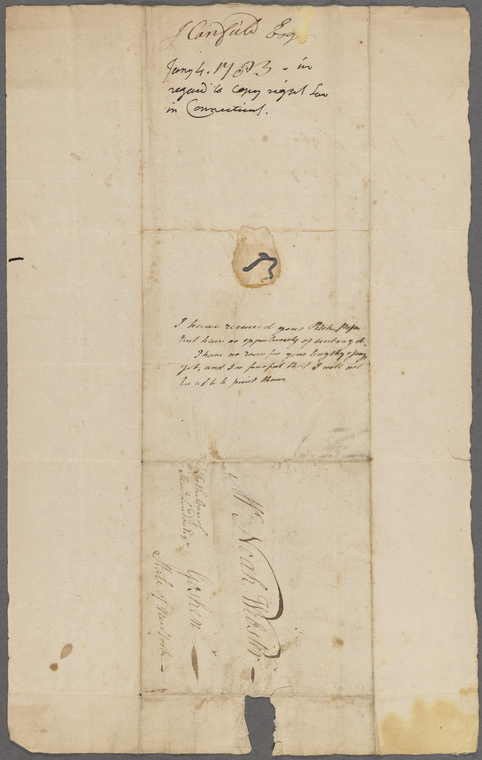 J Canfield Esq
Jany 6. 1783 - in
regard to copy right Law
in Connecticut.
I have received your
but have no opportunity of sending it.
I have no room for your lengthy
yet, and I'm fearful that I will not
be able to print them
Mr. Noah Webster
Goshen
State of New York